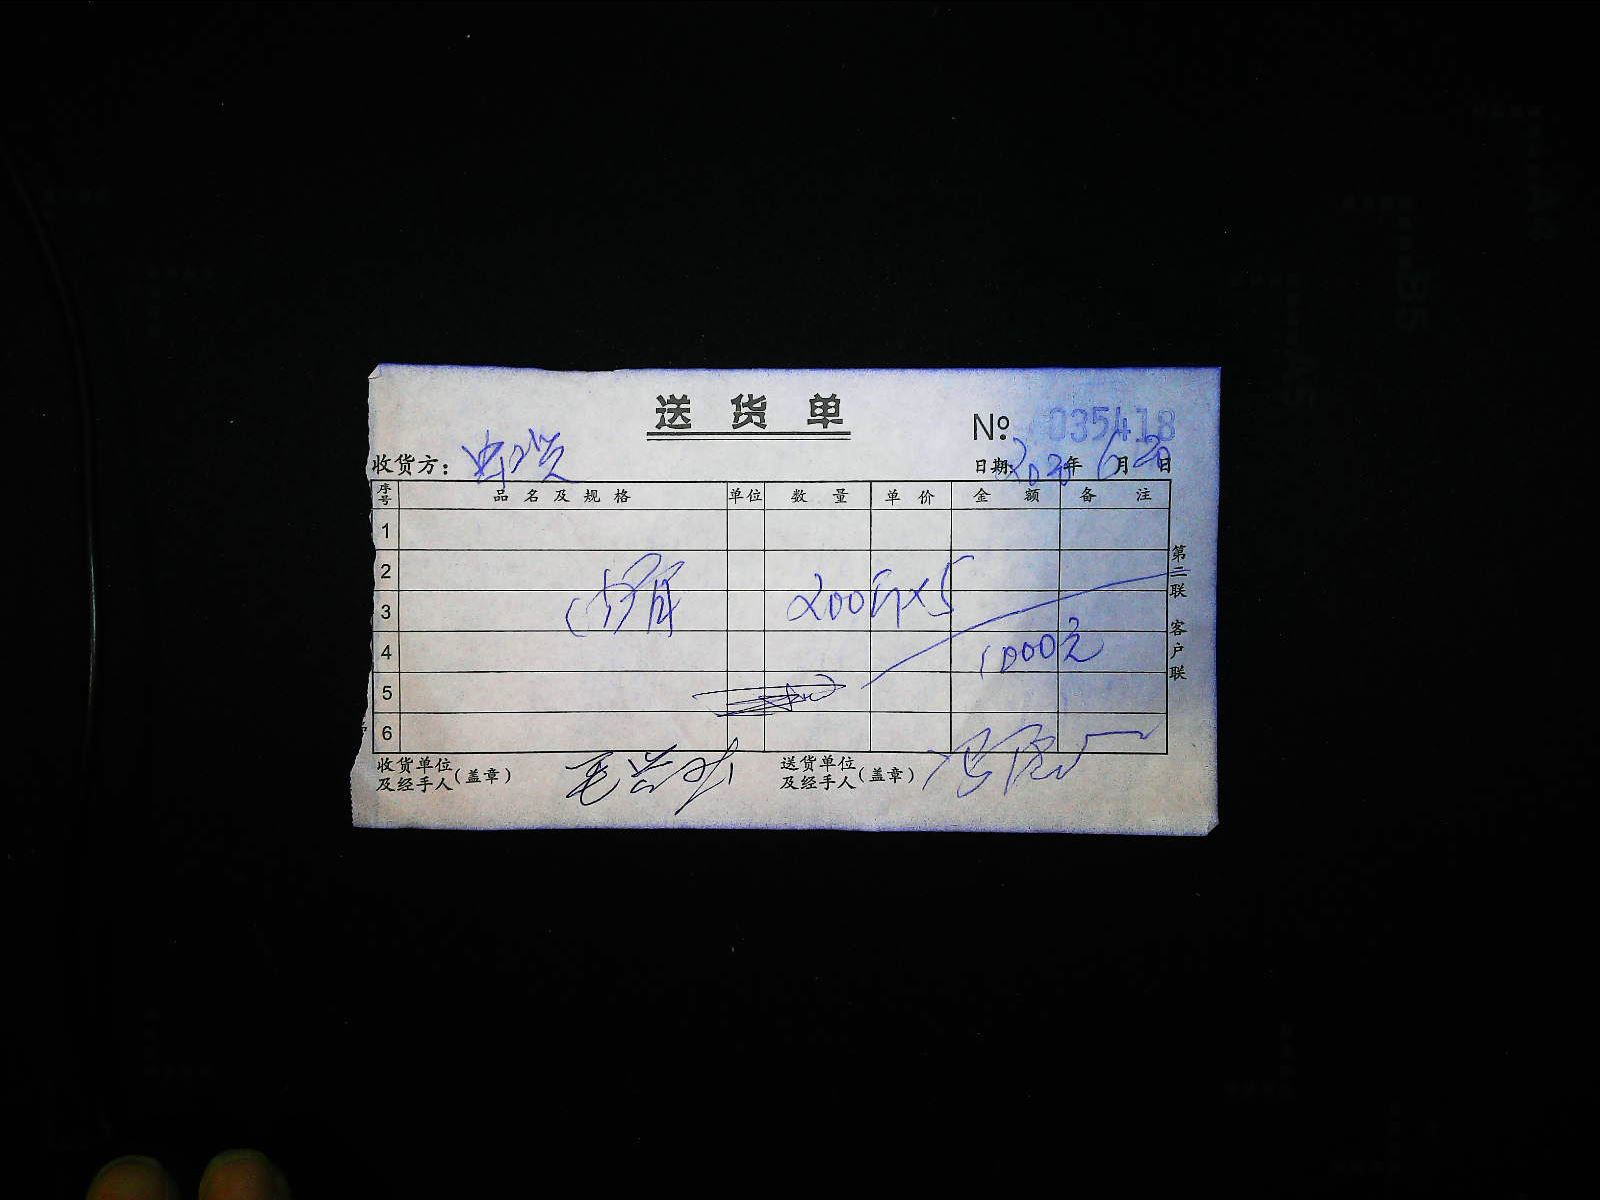 送 货 单
№: 035418
收货方:
日期: 2020年 6月 20日
序号 品 名 及 规 格 单位 数 量 单 价 金 额 备 注
1
2
3 200斤×5
4 1000元
5
6
第二联 客户联
收货单位及经手人(盖章) 送货单位及经手人(盖章)